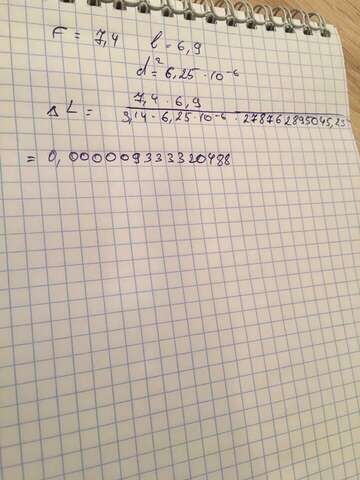 F = 7,4 l = 6,9
d² = 6,25 · 10⁻⁶
ΔL = 7,4 · 6,9
3,14 · 6,25 · 10⁻⁶ · 278762895045,25
= 0,000009333320488